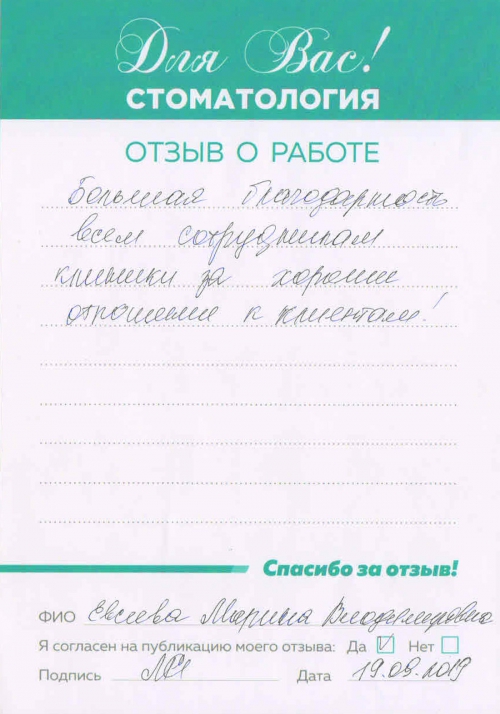 Для Вас!
СТОМАТОЛОГИЯ
ОТЗЫВ О РАБОТЕ
Большая благодарность
всем сотрудникам
клиники за хороши
отношении к клиентам!
Спасибо за отзыв!
ФИО Евсева Марина Владимировна
Я согласен на публикацию моего отзыва: Да Нет
Подпись Дата 19.09.2019